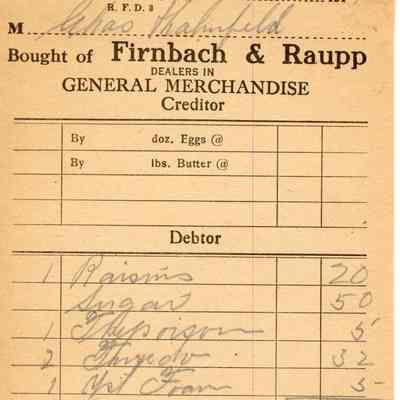 R. F. D. 3
M Chas Kahnfeld
Bought of Firnbach & Raupp
DEALERS IN
GENERAL MERCHANDISE
Creditor
By doz. Eggs @
By lbs. Butter @
Debtor
1 Raisins 20
Sugar 50
1 Flypoison 5
2 32
1 Yst Foam 5